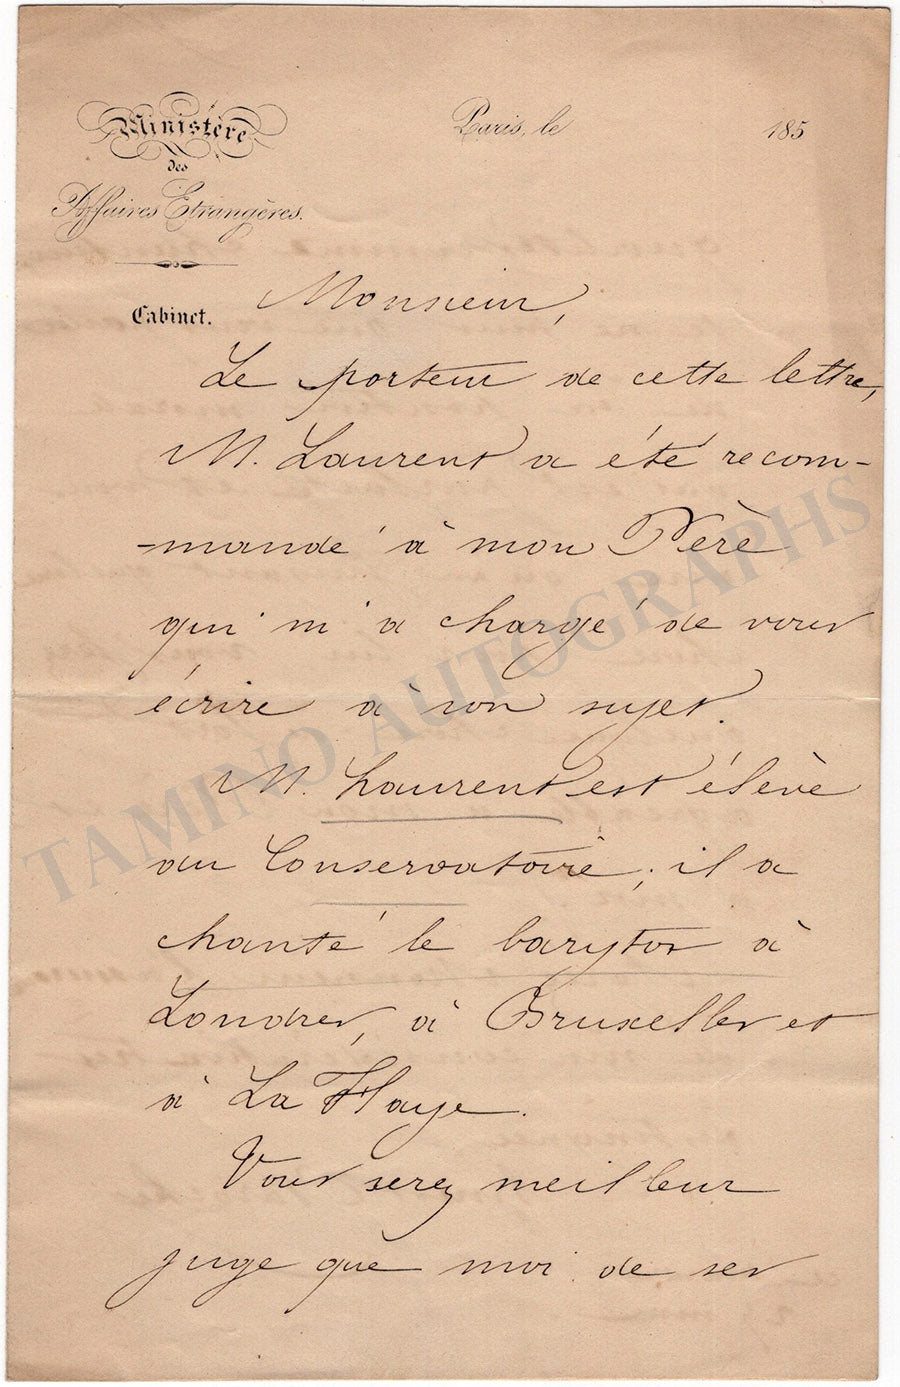 Ministère
des
Affaires Etrangères.
Cabinet.
Paris, le 185
Monsieur,
Le porteur de cette lettre,
M. Laurent a été recom-
-mandé à mon Père
qui m'a chargé de vous
écrire à son sujet.
M. Laurent est élève
au Conservatoire; il a
chanté le baryton à
Londres, à Bruxelles et
à La Haye.
Vous serez meilleur
juge que moi de ses
TAMINO AUTOGRAPHS